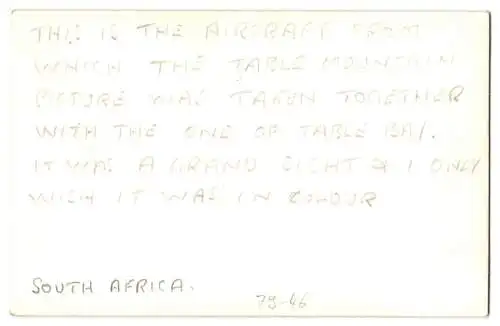 THIS IS THE AIRCRAFT FROM
WHICH THE TABLE MOUNTAIN
PICTURE WAS TAKEN TOGETHER
WITH THE ONE OF TABLE BAY.
IT WAS A GRAND SIGHT & I ONLY
WISH IT WAS IN COLOUR
SOUTH AFRICA.
79-46